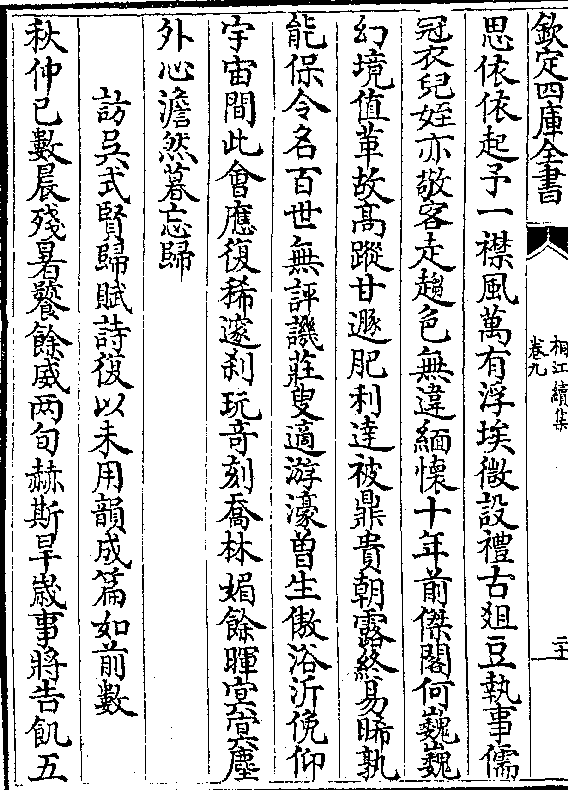 欽定四庫全書
桐江續集
卷九
二十
思依依起予一襟風萬有浮埃微設禮古爼豆執事儒
冠衣兒姪亦敬客走趨色無違緬懷十年前傑閣何巍巍
幻境值革故髙蹤甘遯肥利達被鼎貴朝露終易晞孰
能保令名百世無評譏莊叟適游濠曽生傲浴沂俛仰
宇宙間此會應復稀邃刹玩竒刻喬林媚餘暉寘寘塵
外心澹然暮忘歸
訪吳式賢歸賦詩復以未用韻成篇如前數
秋仲已數晨殘暑餮餘威两旬赫斯旱歲事將告飢五